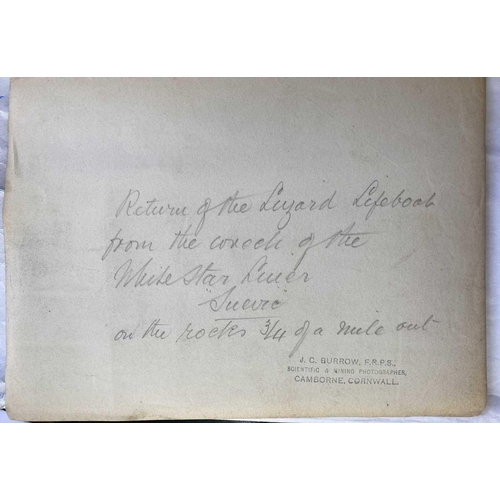 Return of the Lizard Lifeboat
from the wreck of the
White Star Liner
"Suevic"
on the rocks 3/4 of a mile out
J. C. BURROW, F.R.P.S.,
SCIENTIFIC & MINING PHOTOGRAPHER,
CAMBORNE, CORNWALL.